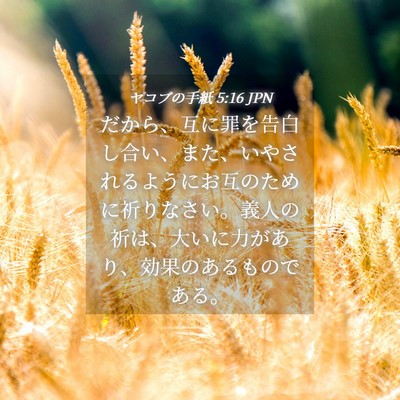 ヤコブの手紙 5:16 JPN
だから、互に罪を告白
し合い、また、いやさ
れるようにお互のため
に祈りなさい。義人の
祈は、大いに力があ
り、効果のあるもので
ある。